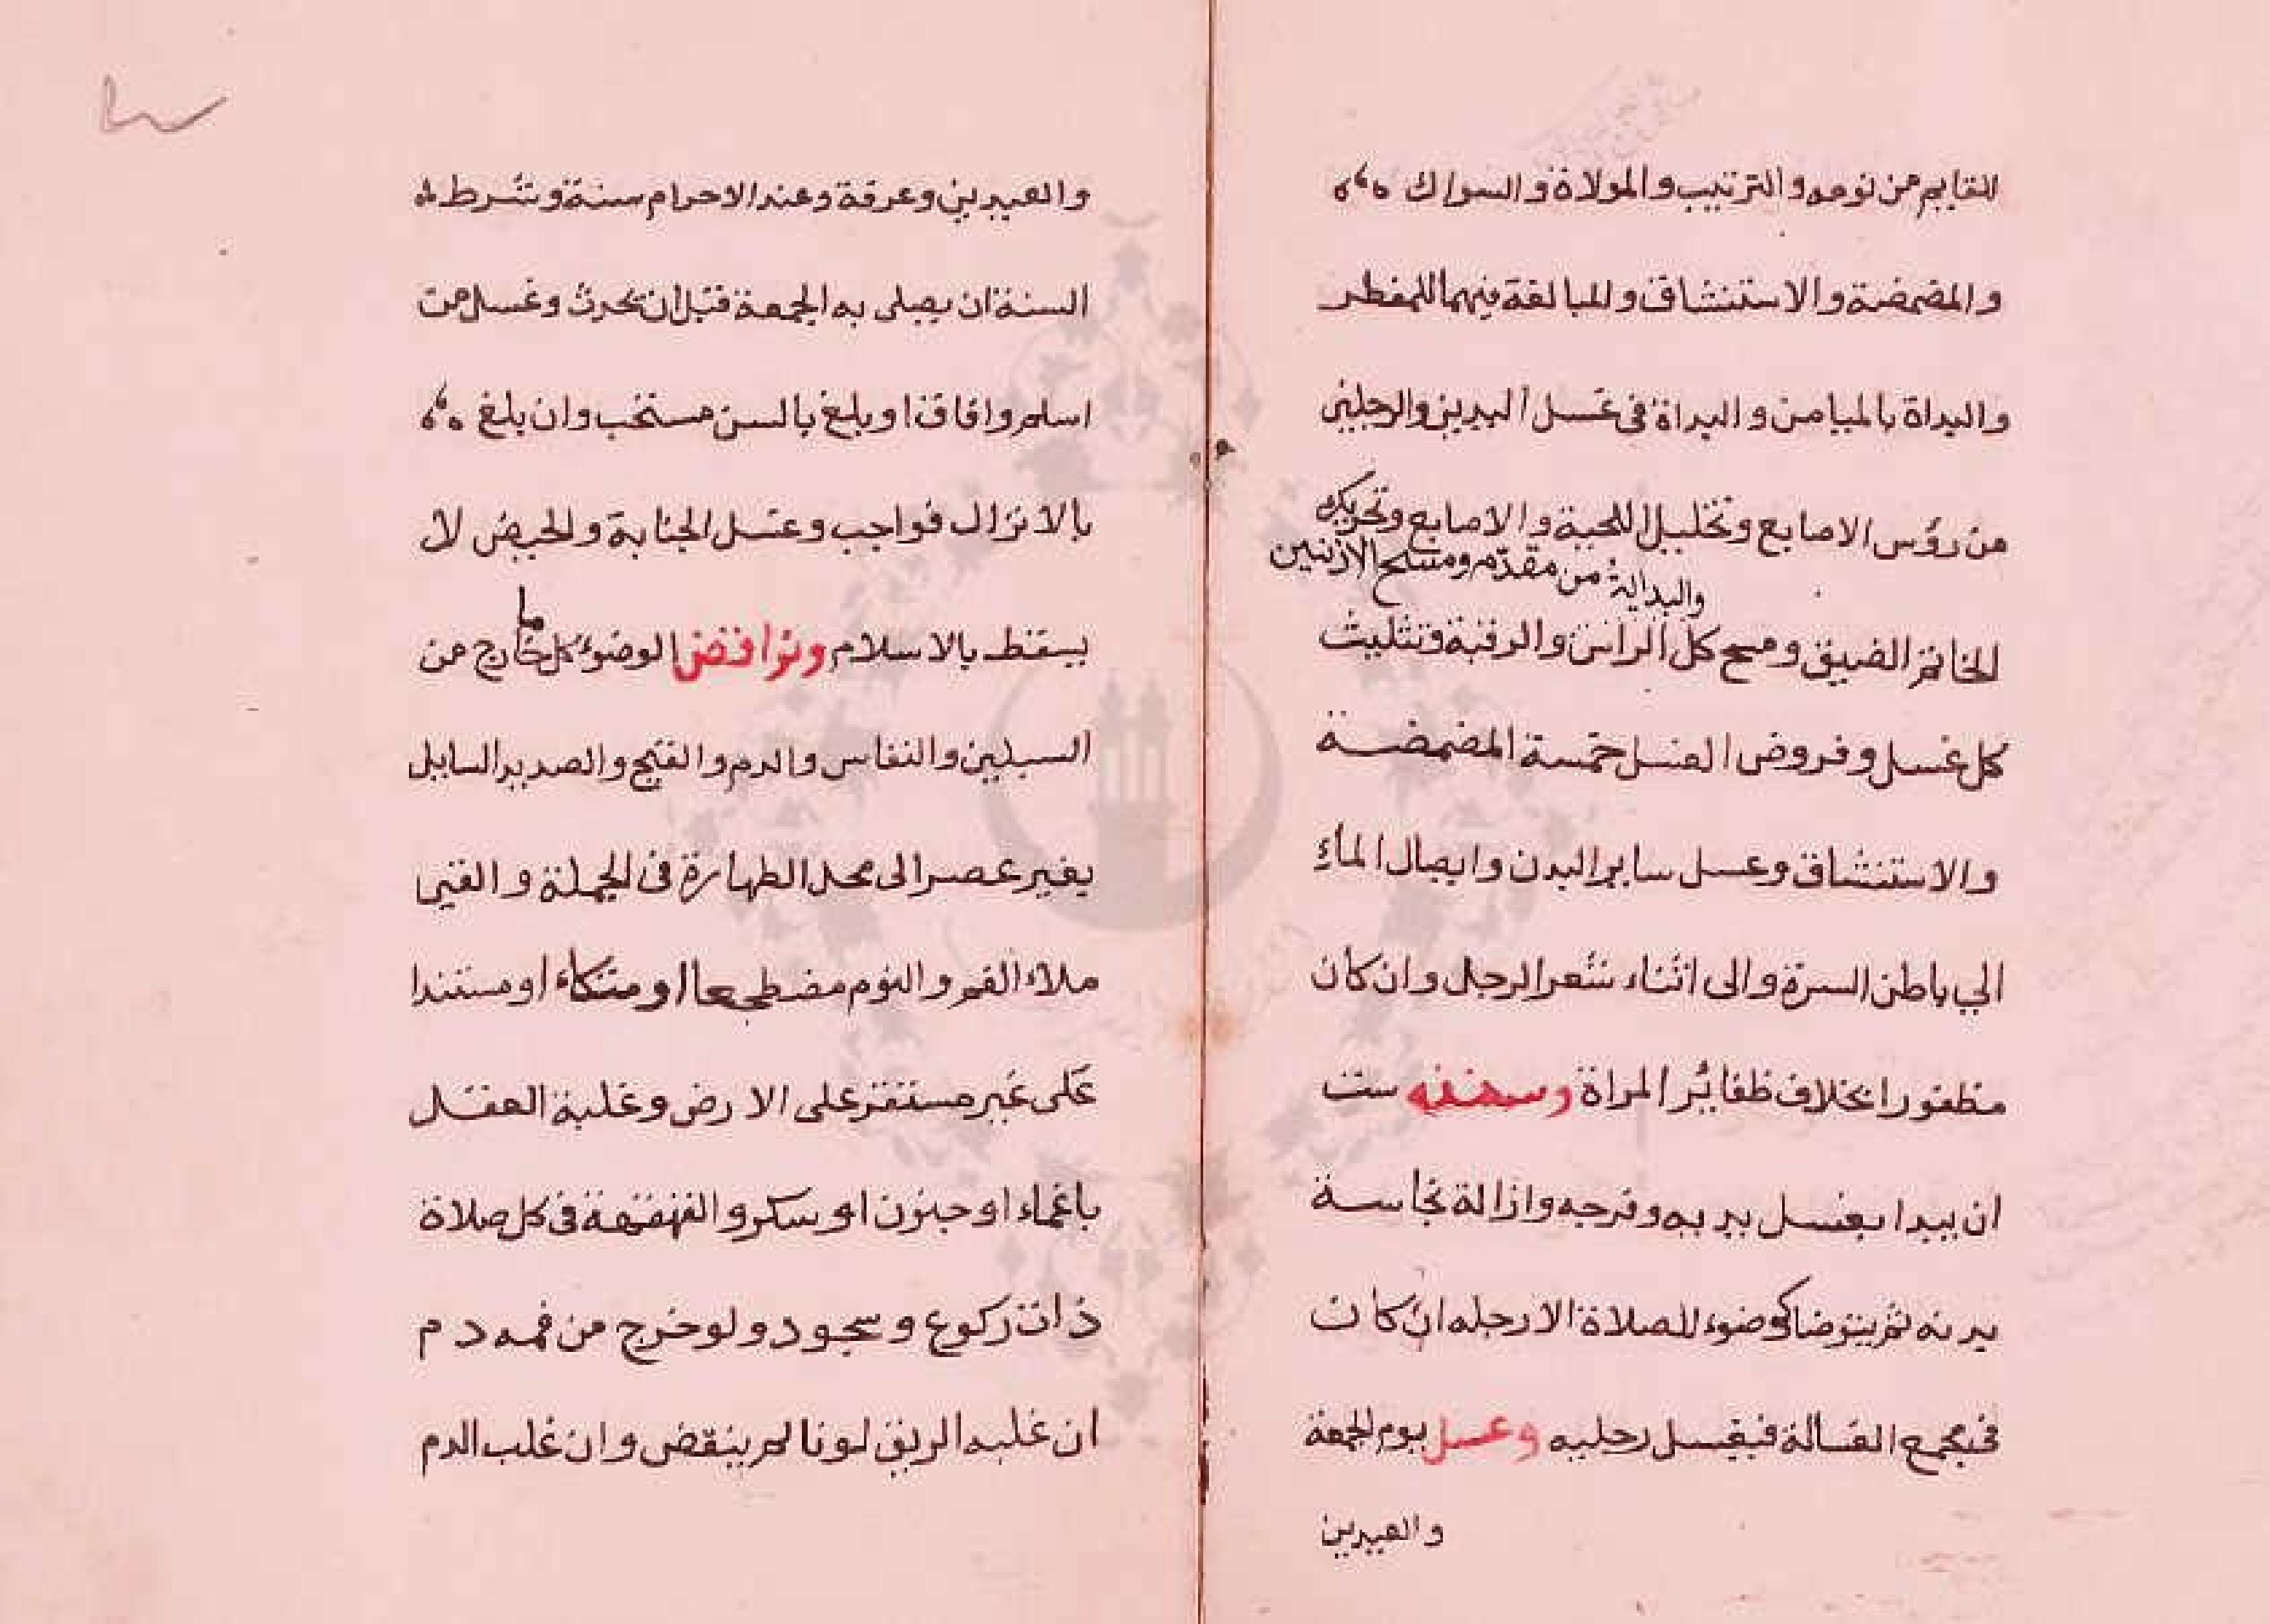 للقايم من نومه والترتيب والمولاة والسواك
والمضمضة والاستنشاق والمبالغة فيهما للمفطر
والبداة بالميامن والبداة في غسل اليدين والرجلين
من رؤس الاصابع وتخليل اللحية والاصابع وتحريك
والبداية من مقدمه ومسح الاذنين
الخاتم الضيق ومسح كل الراس والرقبة وتثليث
كل غسل وفروض الغسل خمسة المضمضة
والاستنشاق وغسل ساير البدن وايصال الماء
الي باطن السرة والى اثناء شعر الرجل وان كان
مظفورا بخلاف ظفائر المراة وسننه ست
ان يبدا بغسل يديه وفرجه وازالة نجاسة
بدنه ثم يتوضا كوضوء للصلاة الا رجله ان كان
في مجمع الغسالة فيغسل رجليه وغسل يوم الجمعة
والعيدين
والعيدين وعرفة وعند الاحرام سنة وشرط
السنة ان يصلى به الجمعة قبل ان يحدث وغسل من
اسلم وافاق او بلغ بالسن مستحب وان بلغ
بالانزال فواجب وغسل الجنابة والحيض لا
يسقط بالاسلام ونواقض الوضوء كل ما خارج من
السبيلين والنفاس والدم والقيح والصديد السايل
بغير عصر الى محل الطهارة في الجملة والقيى
ملاء الفم والنوم مضطجعا او متكاء او مستندا
على غير مستقر على الارض وغلبة العقل
باغماء او جنون او سكر والقهقهة في كل صلاة
ذات ركوع وسجود ولو خرج من فمه دم
ان غلبه الريق لونا لم ينقض وان غلب الدم